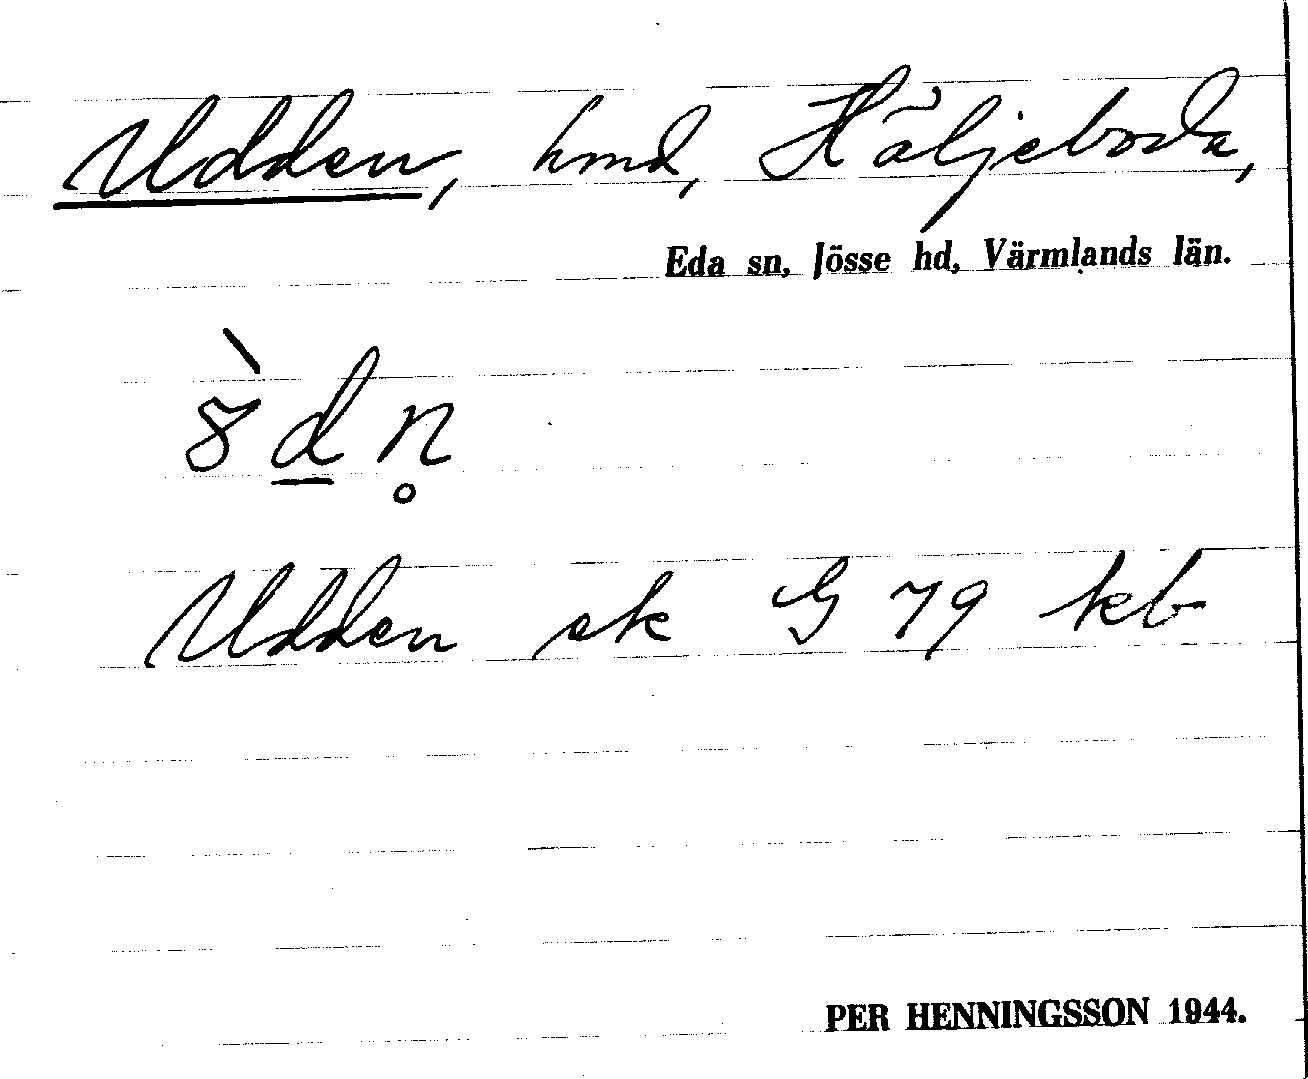 Udden, hmd, Häljeboda,
Eda sn, Jösse hd, Värmlands län.
8̀ d̲ n̥
Udden ek G 79 kb
PER HENNINGSSON 1944.